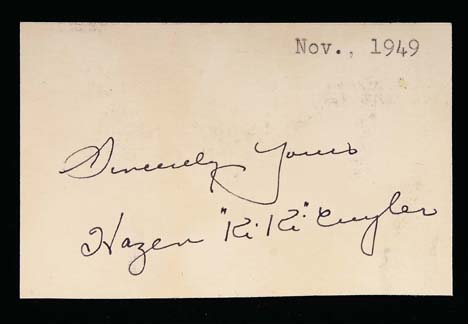 Nov., 1949
Sincerely Yours
Hazen "Ki Ki" Cuyler